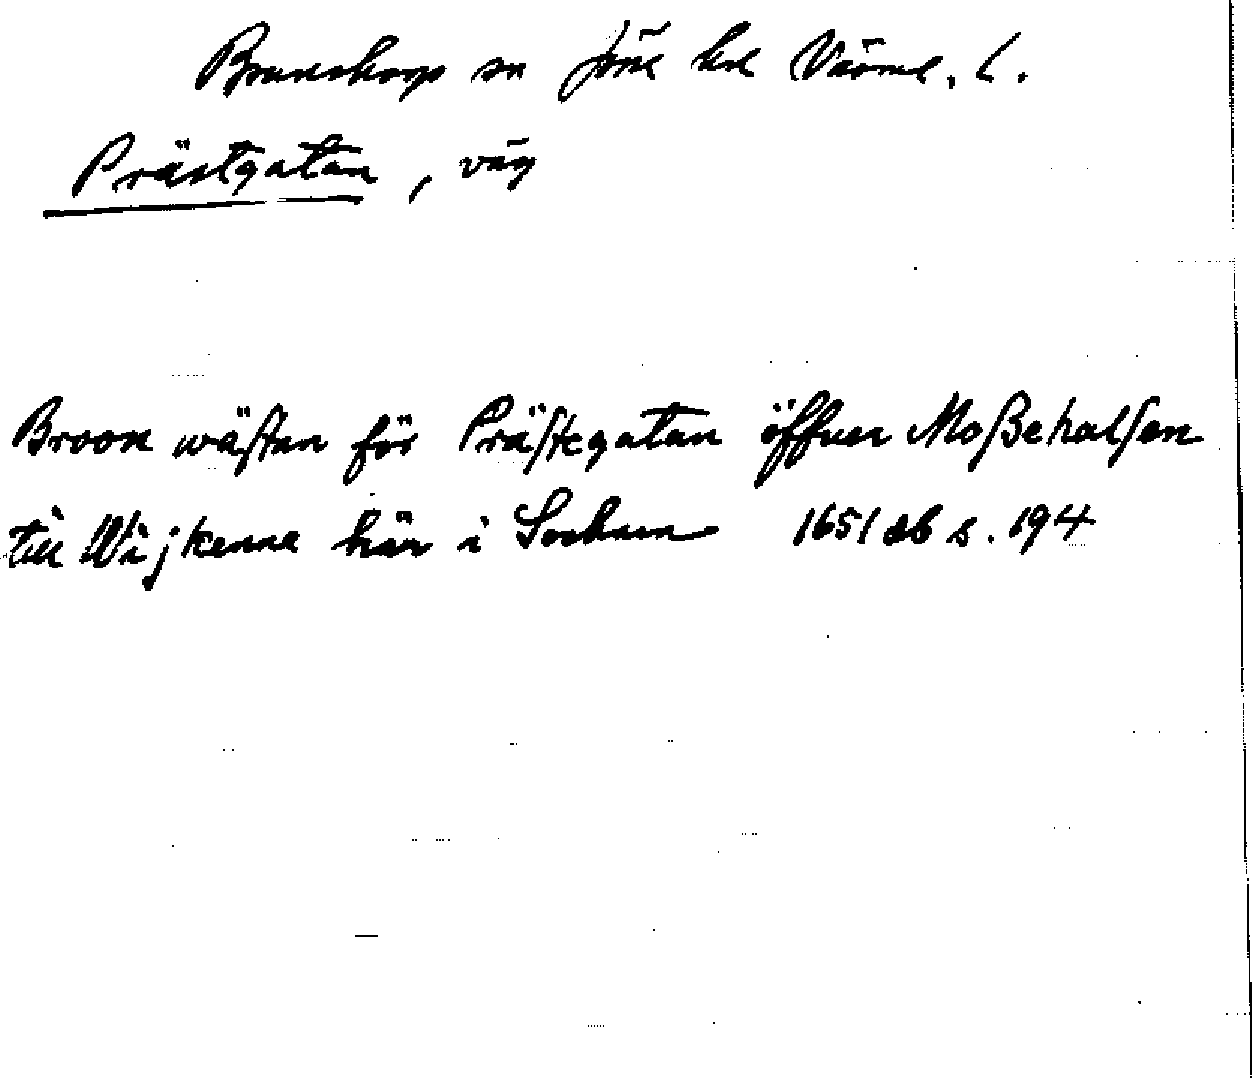 Brunskogs sn Jösse hd Värml. l.
Prästgatan, väg
Broon wästan för Prästegatan öffuer Moßehalsen
till Wijkenne här i Sochnen 1651 db s. 194